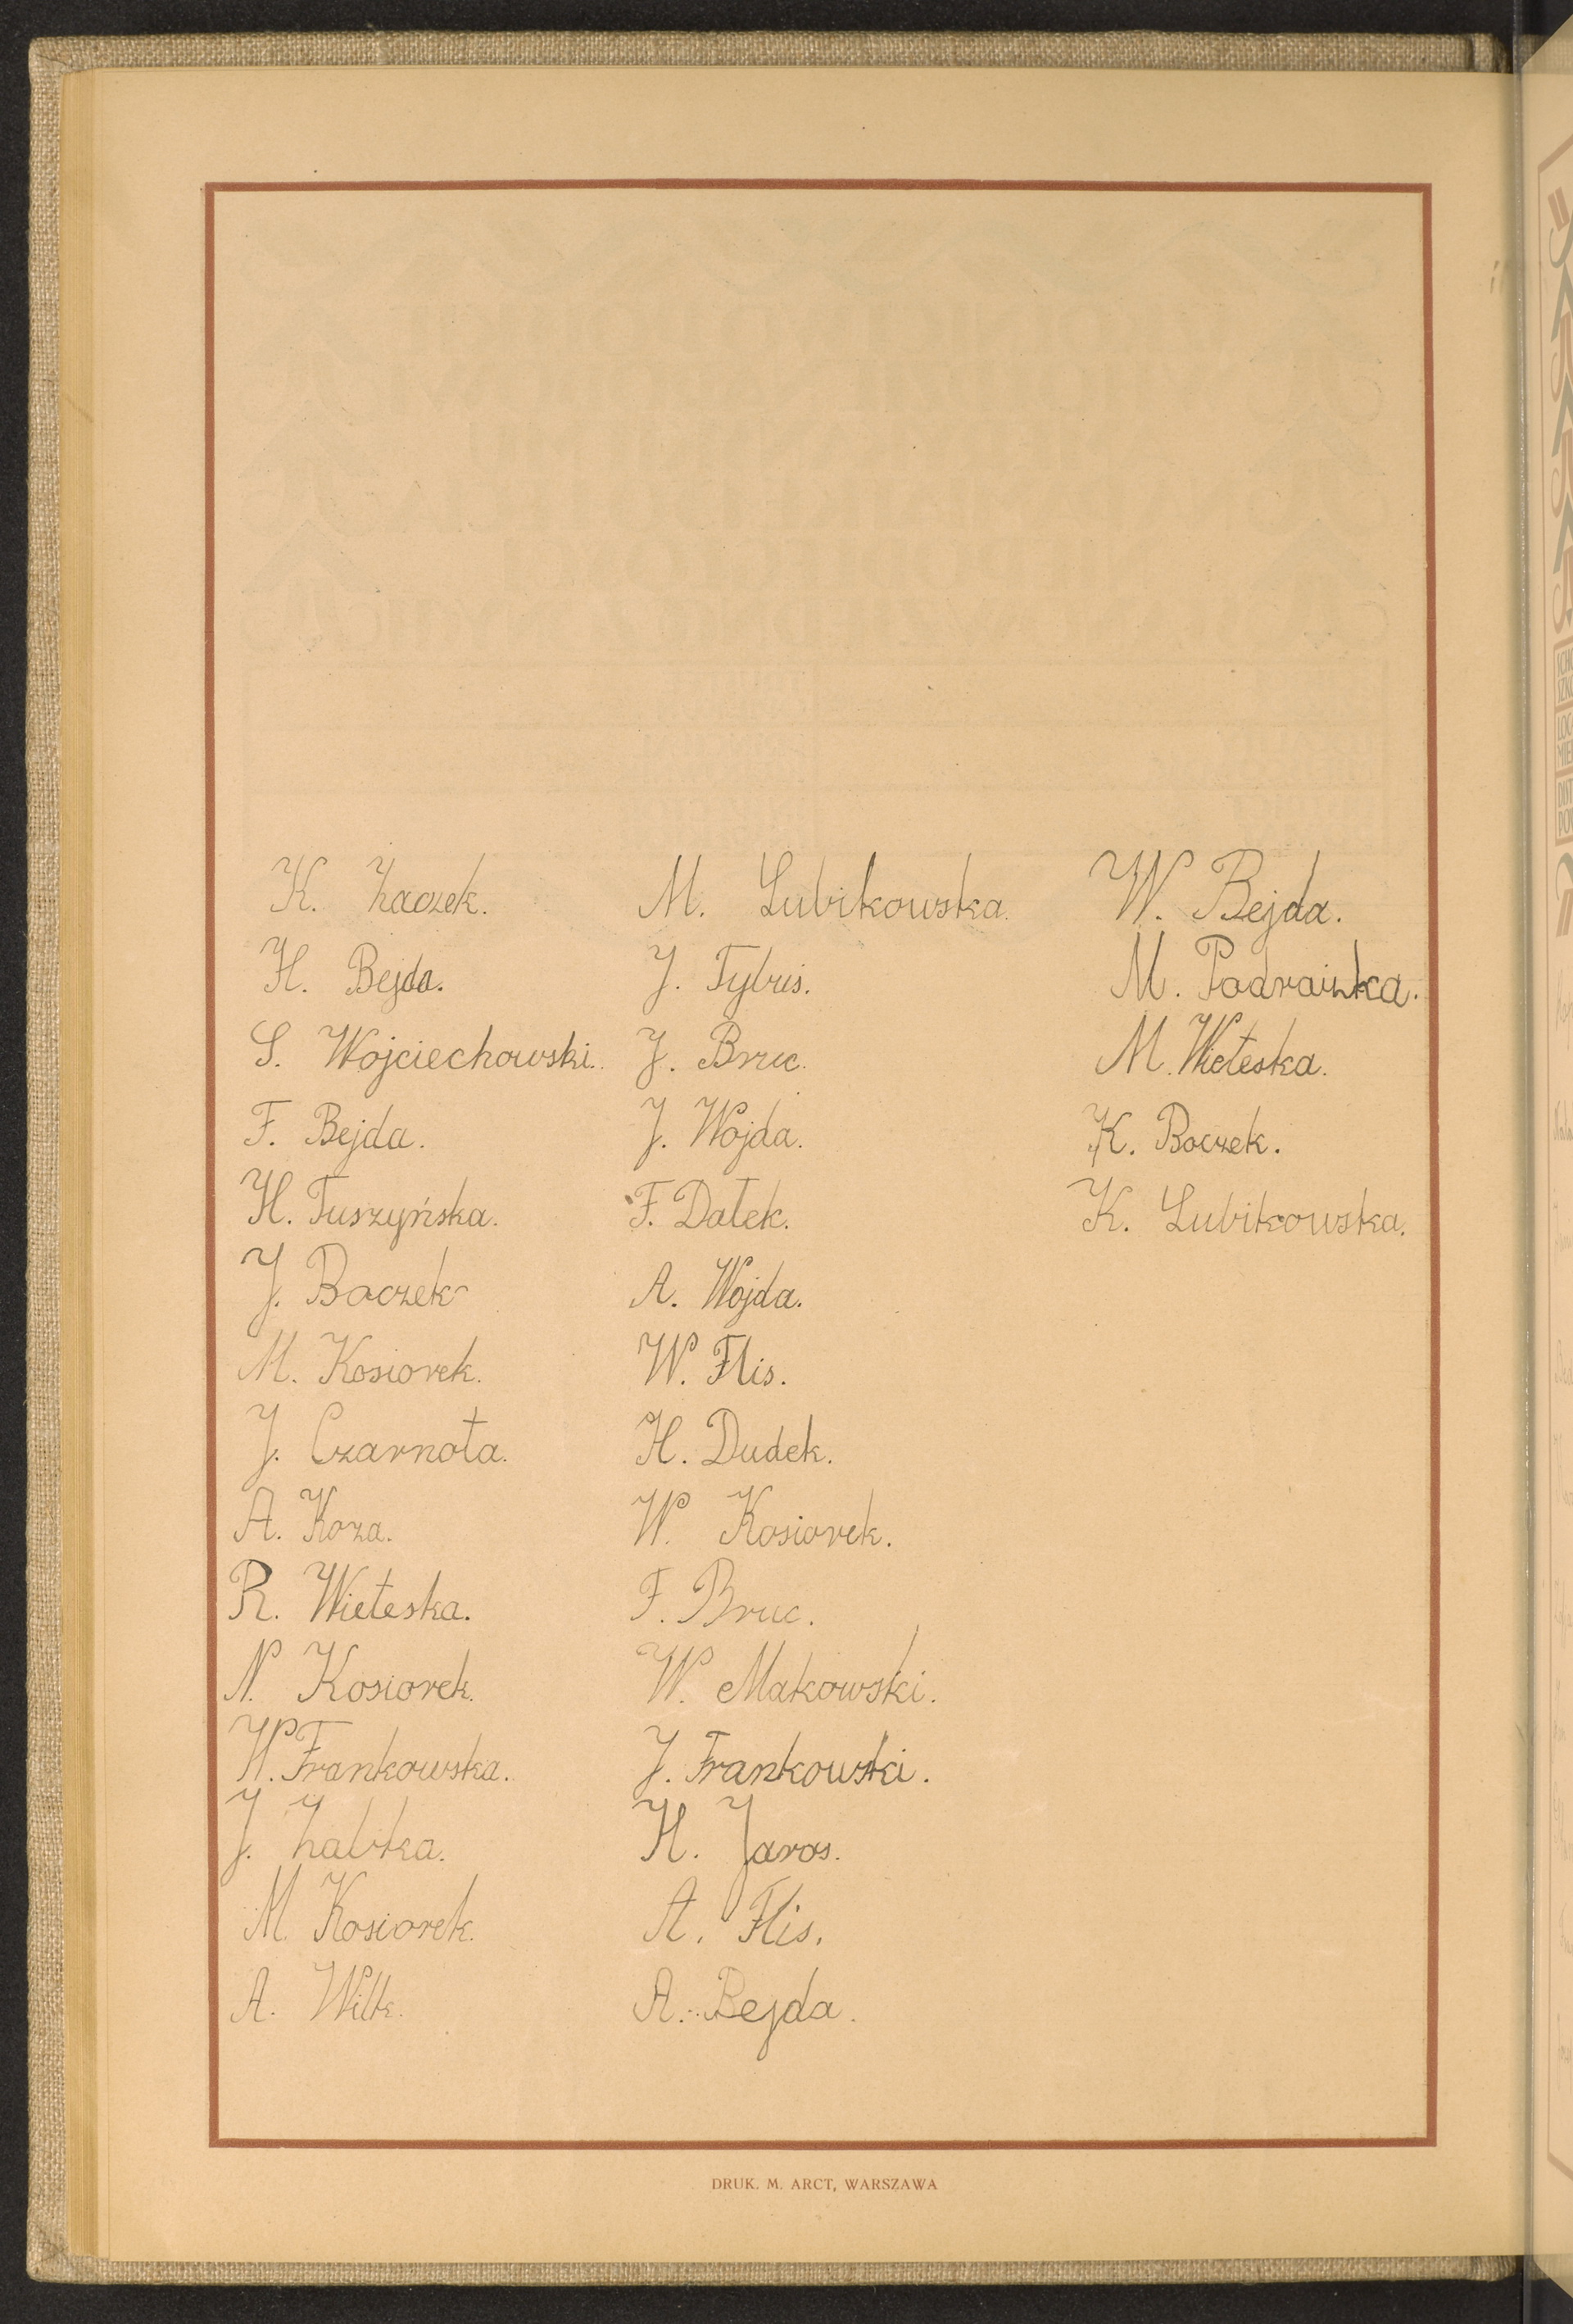 K. Żaczek.
H. Bejda.
S. Wojciechowski.
F. Bejda.
H. Tuszyńska.
J. Boczek
M. Kosiorek.
J. Czarnota.
A. Koza.
R. Wieteska.
N. Kosiorek.
W. Frankowska.
J. Żabka.
M. Kosiorek.
A. Wilk.
M. Lubikowska.
J. Tybuś.
J. Bruc.
J. Wojda.
F. Dałek.
A. Wojda.
W. Flis.
H. Dudek.
W. Kosiorek.
F. Bruc.
W. Makowski.
J. Frankowski.
H. Jaros.
A. Flis.
A. Bejda.
W. Bejda.
M.
M. Wieteska.
K. Boczek.
K. Lubikowska.
DRUK. M. ARCT, WARSZAWA